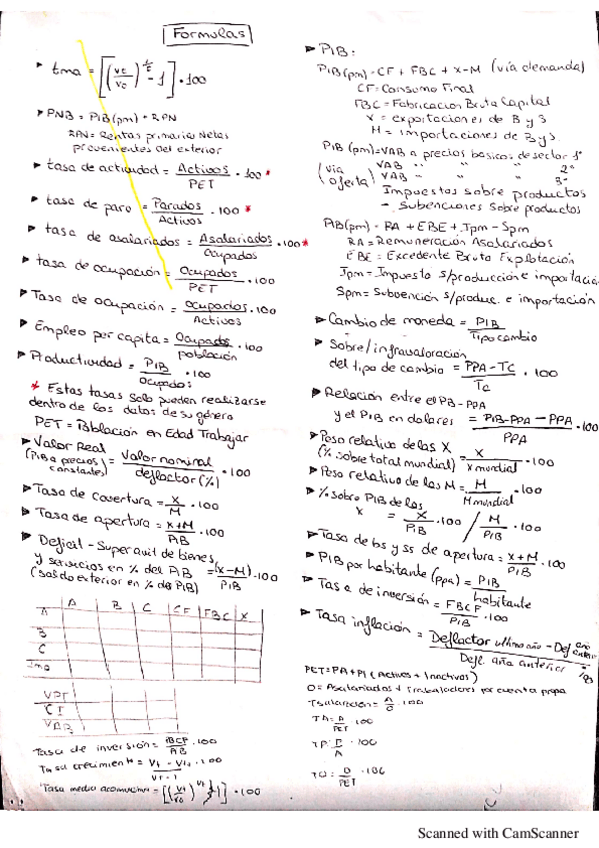 Formulas
tma = [(Vt/Vo)^(1/t) - 1] · 100
PNB = PIB(pm) + RPN
RPN = Rentas primarias Netas
provenientes del exterior
tasa de actividad = Activos/PET · 100 *
tasa de paro = Parados/Activos · 100 *
tasa de asalariados = Asalariados/Ocupados · 100 *
tasa de ocupación = Ocupados/PET · 100
Tasa de ocupación = ocupados/Activos · 100
Empleo per capita = Ocupados/población · 100
Productividad = PIB/Ocupados · 100
* Estas tasas solo pueden realizarse
dentro de los datos de su género
PET = Población en Edad Trabajar
Valor Real
(PIB a precios constantes) = Valor nominal/deflactor (%) · 100
Tasa de cobertura = X/M · 100
Tasa de apertura = X+M/PIB · 100
Deficit - Superavit de bienes
y servicios en % del PIB = (X-M)/PIB · 100
(saldo exterior en % de PIB)
A B C CF FBC X
A
B
C
Imp
VPT
CI
VAB
Tasa de inversión = · 100
Tasa crecimiento = · 100
Tasa media acumulativa = · 100
PIB:
PIB(pm) = CF + FBC + X-M (vía demanda)
CF = Consumo Final
FBC = Fabricación Bruta Capital
X = exportaciones de B y S
M = importaciones de B y S
PIB (pm) = VAB a precios basicos de sector 1º
(vía oferta) VAB " " " 2º
VAB " " " 3º
Impuestos sobre productos
- Subenciones sobre productos
PIB(pm) = RA + EBE + Ipm - Spm
RA = Remuneración Asalariados
EBE = Excedente Bruto Explotación
Ipm = Impuesto s/producción e importación
Spm = Subvención s/produc. e importación
Cambio de moneda = PIB/Tipo cambio
Sobre/infravaloración
del tipo de cambio = PPA-TC/TC · 100
Relación entre el PIB-PPA
y el PIB en dolares = PIB-PPA - PPA/PPA · 100
Peso relativo de las X
(% sobre total mundial) = X/X mundial · 100
Peso relativo de las M = M/M mundial · 100
% sobre PIB de las
X = X/PIB · 100 / M/PIB · 100
Tasa de bs y ss de apertura = X+M/PIB · 100
PIB por habitante (ppa) = PIB/habitante
Tasa de inversión = FBCF/PIB · 100
Tasa inflación = Deflactor ultimo año - Def. año anterior/Defl. año anterior
PET = PA + PI (Activos + Inactivos)
O = Asalariados + Trabajadores por cuenta propia
Tsalarización = A/O · 100
TA = A/PET · 100
TP: P/A · 100
TO: O/PET · 100
Scanned with CamScanner